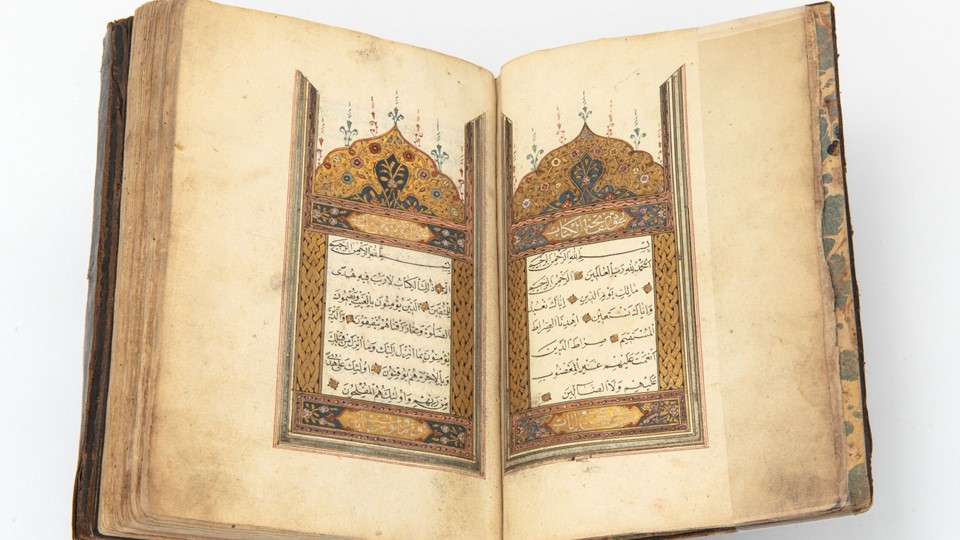 فاتحة الكتاب
بسم الله الرحمن الرحيم
الحمد لله رب العالمين الرحمن الرحيم
مالك يوم الدين اياك نعبد
واياك نستعين اهدنا الصراط
المستقيم صراط الذين
انعمت عليهم غير المغضوب
عليهم ولا الضالين
بسم الله الرحمن الرحيم
الم ذلك الكتاب لا ريب فيه هدى
للمتقين الذين يؤمنون بالغيب ويقيمون
الصلوة ومما رزقناهم ينفقون والذين
يؤمنون بما انزل اليك وما انزل من قبلك
وبالاخرة هم يوقنون اولئك على هدى
من ربهم واولئك هم المفلحون